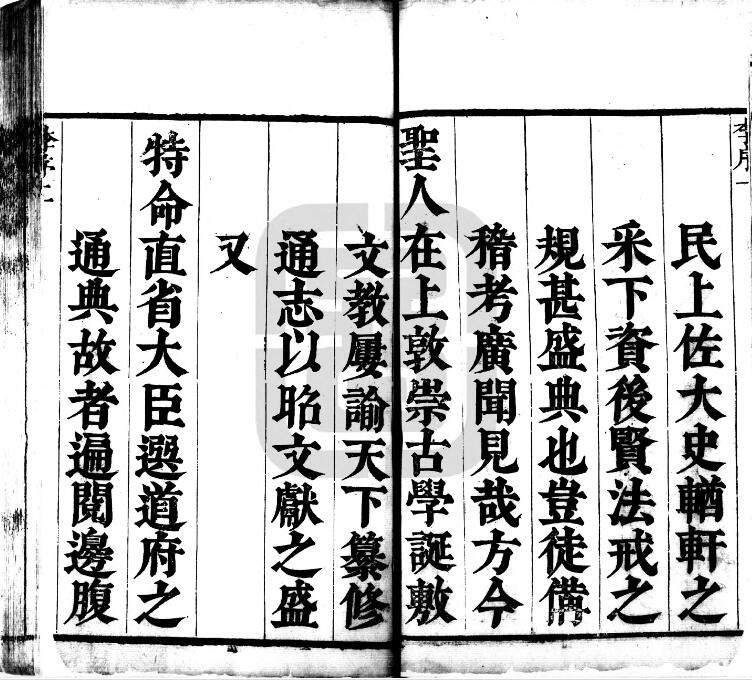 李序一
民上佐大史輶軒之
采下資後賢法戒之
規甚盛典也豈徒備
稽考廣聞見哉方今
聖人在上敦崇古學誕敷
文教屢諭天下纂修
通志以昭文獻之盛
又
特命直省大臣選道府之
通典故者遍閱邊腹